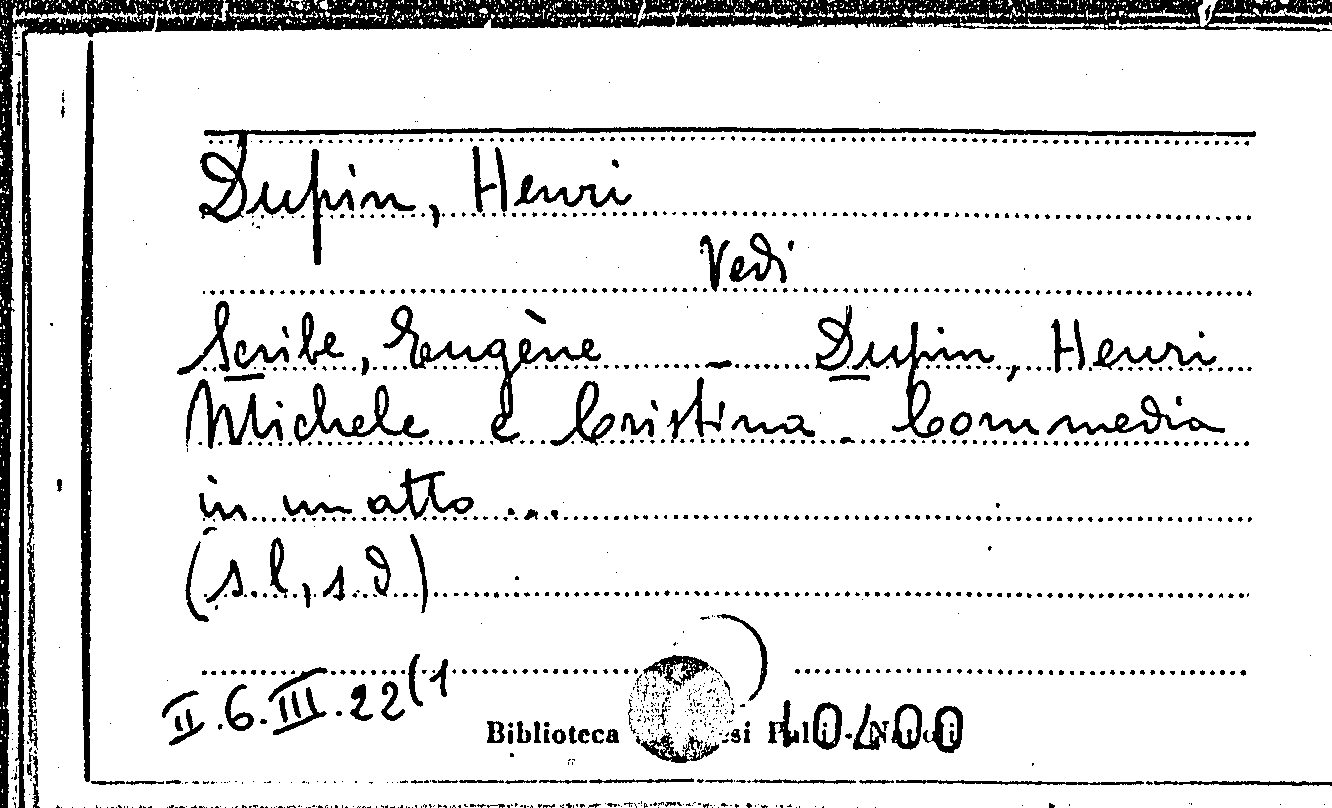 Dupin, Henri
Vedi
Scribe, Eugène - Dupin, Henri
Michele e Cristina. Commedia
in un atto ...
(s.l, s.d)
II.6.III.22(1
Biblioteca
10400